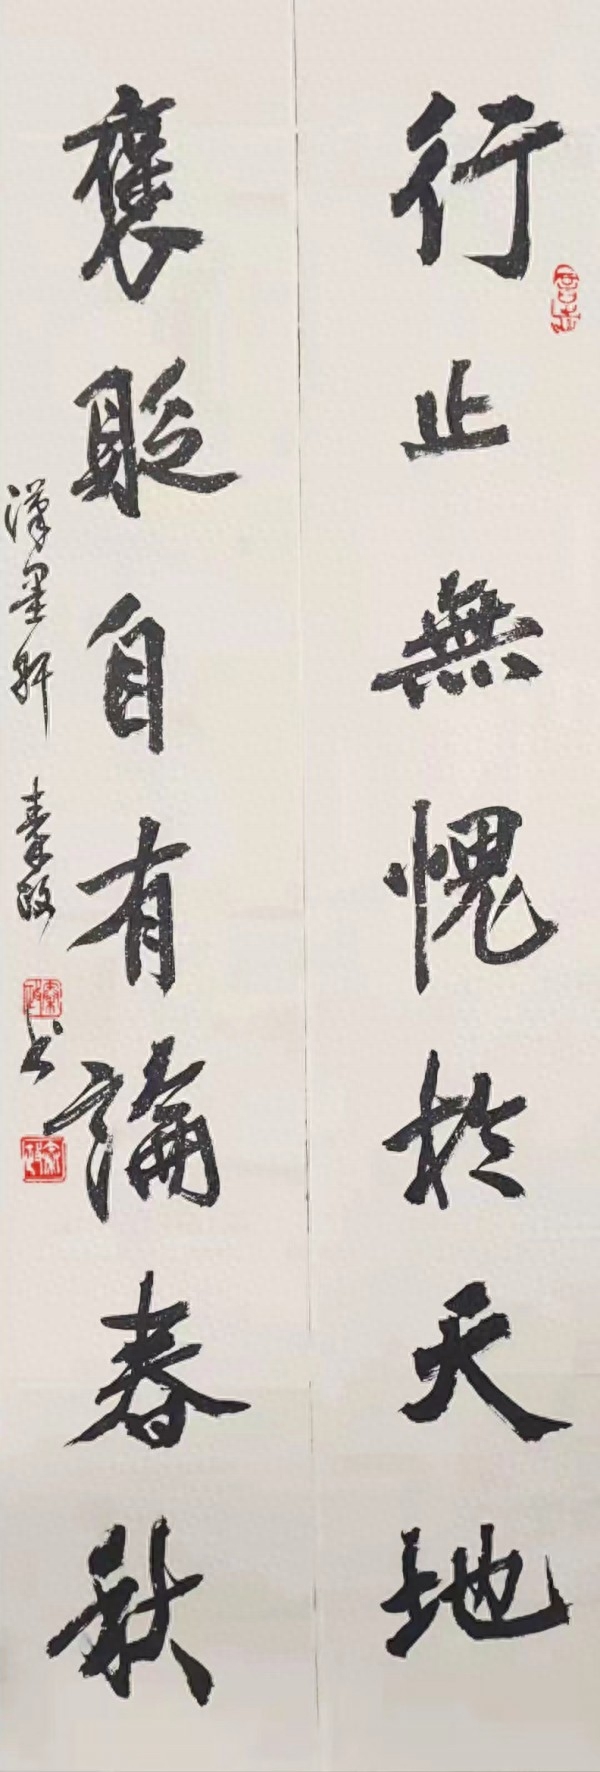 行止無愧於天地
褒貶自有論春秋
漢墨軒 秦政 书